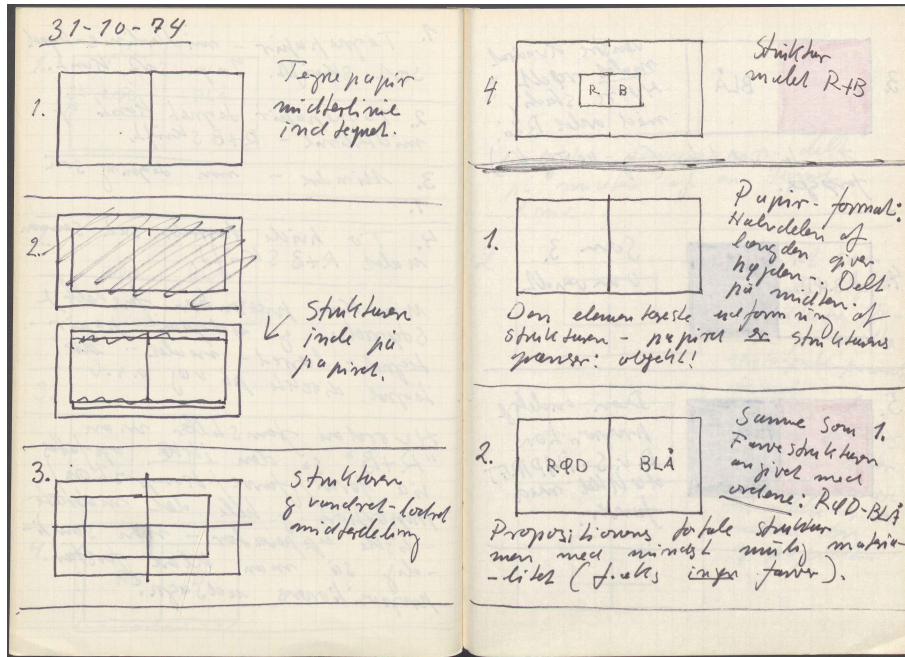 31-10-74
1.
Tegnepapir
midterlinie
indtegnet.
2.
Strukturen
inde på
papiret.
3.
Strukturen
g vandret-lodret
midterdeling
4
R B
Struktur
malet R+B
1.
Papir-format:
Halvdelen af
længden giver
højden. Delt
på midten.
Den elementæreste udformning af
strukturen - papiret er strukturens
grænser: objekt!
2.
RØD BLÅ
Samme som 1.
Farvestrukturen
angivet med
ordene: RØD-BLÅ
Propositionens totale struktur
men med mindst mulig materia-
-litet (f.eks ingen farver).